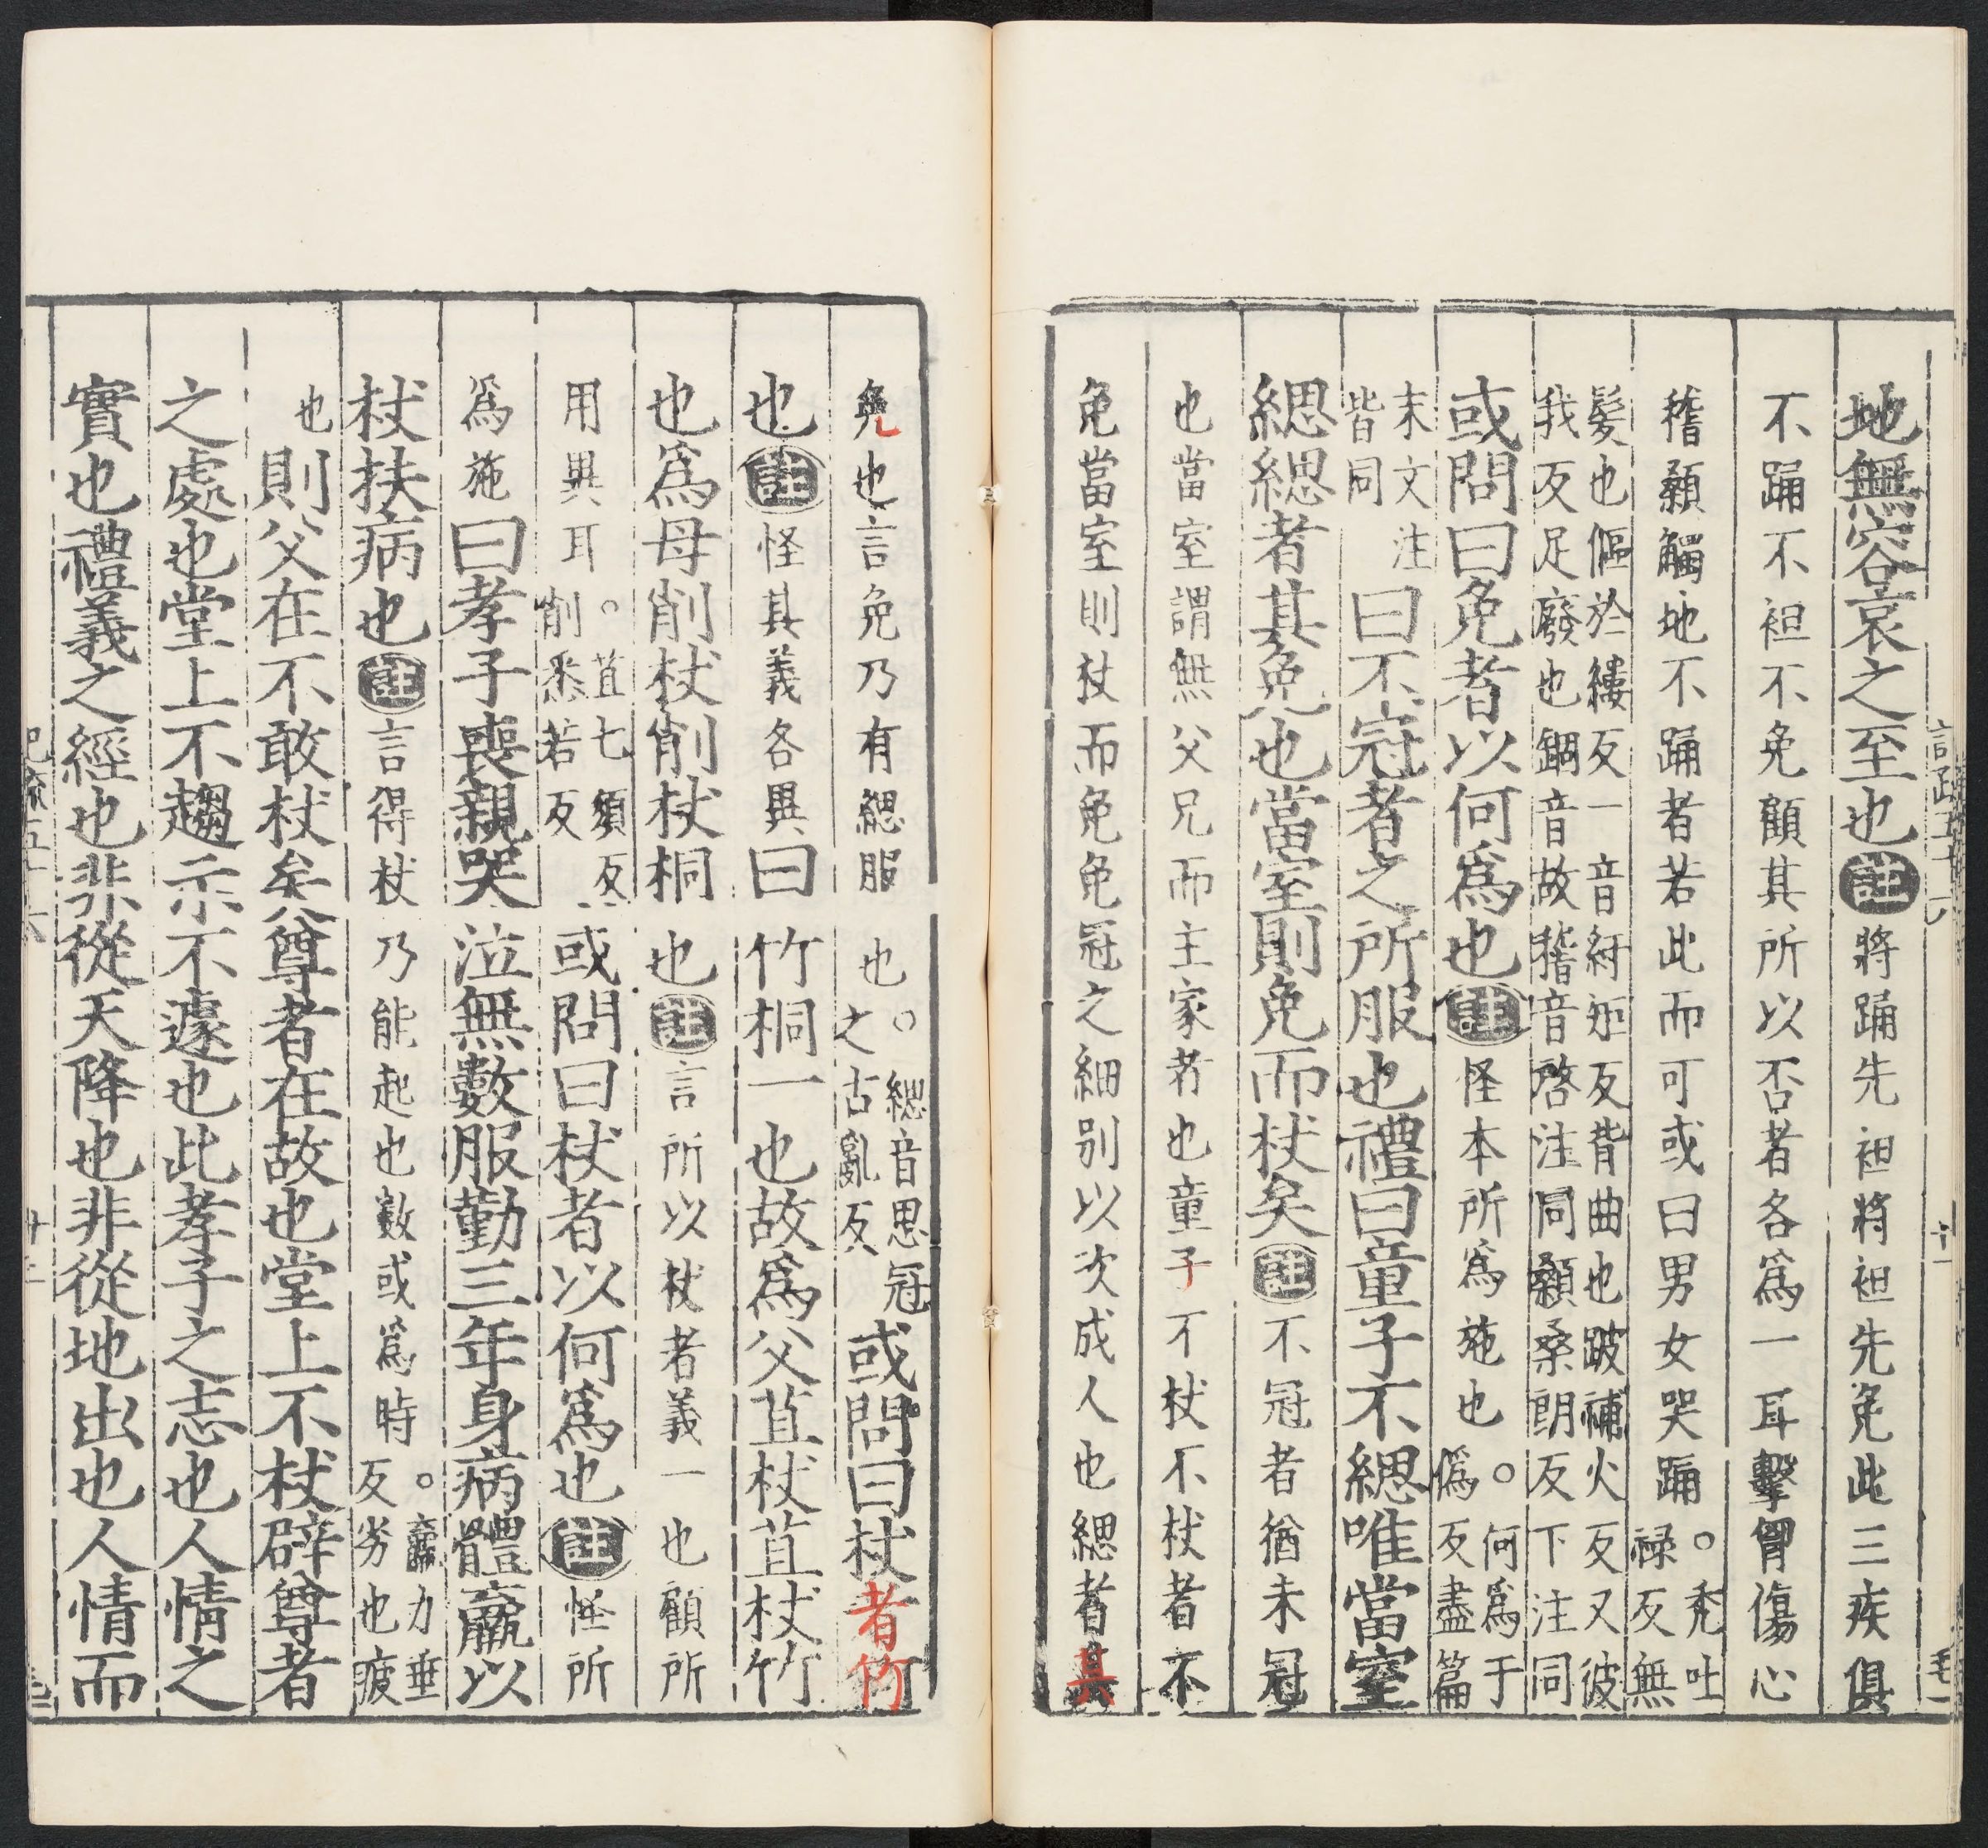 地無容哀之至也註將踊先袒將袒先免此三疾俱
不踊不袒不免顧其所以否者各為一耳擊胷傷心
稽顙觸地不踊者若此而可或曰男女哭踊。禿吐
禄反無
髮也傴於縷反一音紆矩反背曲也跛補火反又彼
我反足廢也錮音故稽音啓注同顙桑朗反下注同
或問曰免者以何爲也註怪本所爲施也。何爲于
僞反盡篇
末文注
皆同曰不冠者之所服也禮曰童子不緦唯當室
緦緦者其免也當室則免而杖矣註不冠者猶未冠
也當室謂無父兄而主家者也童子不杖不杖者不
免當室則杖而免免冠之細别以次成人也緦者其
免也言免乃有緦服也。緦音思冠
之古亂反或問曰杖者竹
也註怪其義各異曰竹桐一也故爲父苴杖苴杖竹
也爲母削杖削杖桐也註言所以杖者義一也顧所
用異耳。苴七須反
削悉若反或問曰杖者以何爲也註怪所
爲施曰孝子喪親哭泣無數服勤三年身病體羸以
杖扶病也註言得杖乃能起也數或爲時。羸力垂
反劣也疲
也則父在不敢杖矣尊者在故也堂上不杖辟尊者
之處也堂上不趨示不遽也此孝子之志也人情之
實也禮義之經也非從天降也非從地出也人情而